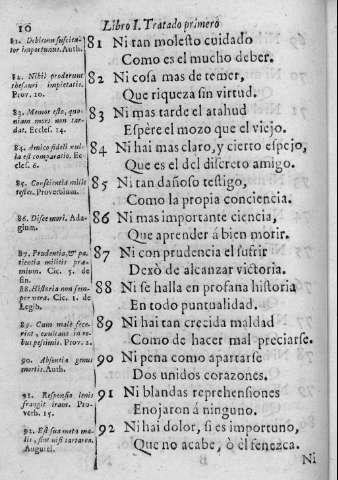 10
Libro I. Tratado primero
81. Debitum suscitator importunus. Auth.
81 Ni tan molesto cuidado
Como es el mucho deber.
82. Nihil proderunt
thesauri impietatis.
Prov. 10.
82 Ni cosa mas de temer,
Que riqueza sin virtud.
83. Memor esto, quoniam mors non tardat. Eccles. 14.
83 Ni mas tarde el atahud
Espère el mozo que el viejo.
84. Amico fideli nulla est comparatio. Eccles. 6.
84 Ni hai mas claro, y cierto espejo,
Que es el del discreto amigo.
85. Conscientia mille
testes. Proverbium.
85 Ni tan dañoso testigo,
Como la propia conciencia.
86. Disce mori. Adagium.
86 Ni mas importante ciencia,
Que aprender á bien morir.
87. Prudentia, & patientia militis præmium. Cic. 5. de
fin.
87 Ni con prudencia el sufrir
Dexò de alcanzar victoria.
88. Historia non semper vera. Cic. 1. de
Legib.
88 Ni se halla en profana historia
En todo puntualidad.
89. Cum male fecerint, exultant in rebus pessimis. Prov. 2.
89 Ni hai tan crecida maldad
Como de hacer mal preciarse.
90. Absentia genus
mortis. Auth.
90 Ni pena como apartarse
Dos unidos corazones.
91. Responsio lenis
frangit iram. Prov. 15.
91 Ni blandas reprehensiones
Enojaron á ninguno.
92. Est sua meta malis, sint nisi tartarea.
August.
92 Ni hai dolor, si es importuno,
Que no acabe, ò èl fenezca.
Ni